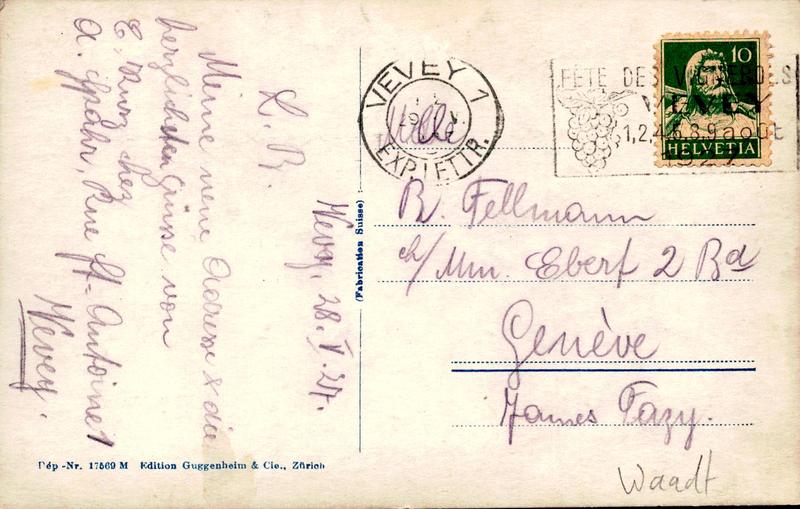 Vevey, 28. V. 27.
L. B.
Meine neue Adresse & die
herzlichsten Grüsse von
E. Kunz chez
A. Spahr, Rue St-Antoine 1
Vevey.
(Fabrication Suisse)
Dép-Nr. 17569 M Edition Guggenheim & Cie., Zürich
VEVEY 1
EXP. LETTR.
FÊTE DES VIGNERONS
VEVEY
1,2,4,6,8,9 août
1927
10
HELVETIA
Mlle
B. Fellmann
ch/ Mm. Eberf 2 Bd
Genève
James Fazy.
Waadt